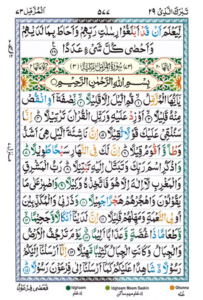 تبٰرك الذی ٢٩ ٥٧٧ المزمل ٧٣
لِّيَعْلَمَ اَنْ قَدْ اَبْلَغُوْا رِسٰلٰتِ رَبِّهِمْ وَاَحَاطَ بِمَا لَدَيْهِمْ
وَاَحْصٰى كُلَّ شَيْءٍ عَدَدًا
بِسْمِ اللّٰهِ الرَّحْمٰنِ الرَّحِيْمِ
يٰۤاَيُّهَا الْمُزَّمِّلُ قُمِ الَّيْلَ اِلَّا قَلِيْلًا نِّصْفَهٗۤ اَوِ انْقُصْ
مِنْهُ قَلِيْلًا اَوْ زِدْ عَلَيْهِ وَرَتِّلِ الْقُرْاٰنَ تَرْتِيْلًا اِنَّا
سَنُلْقِيْ عَلَيْكَ قَوْلًا ثَقِيْلًا اِنَّ نَاشِئَةَ الَّيْلِ هِيَ اَشَدُّ
وَطْاً وَّاَقْوَمُ قِيْلًا اِنَّ لَكَ فِي النَّهَارِ سَبْحًا طَوِيْلًا
وَاذْكُرِ اسْمَ رَبِّكَ وَتَبَتَّلْ اِلَيْهِ تَبْتِيْلًا رَبُّ الْمَشْرِقِ
وَالْمَغْرِبِ لَاۤ اِلٰهَ اِلَّا هُوَ فَاتَّخِذْهُ وَكِيْلًا وَاصْبِرْ عَلٰى مَا
يَقُوْلُوْنَ وَاهْجُرْهُمْ هَجْرًا جَمِيْلًا وَذَرْنِيْ وَالْمُكَذِّبِيْنَ
اُولِي النَّعْمَةِ وَمَهِّلْهُمْ قَلِيْلًا اِنَّ لَدَيْنَاۤ اَنْكَالًا وَّجَحِيْمًا
وَّطَعَامًا ذَا غُصَّةٍ وَّعَذَابًا اَلِيْمًا يَوْمَ تَرْجُفُ الْاَرْضُ
وَالْجِبَالُ وَكَانَتِ الْجِبَالُ كَثِيْبًا مَّهِيْلًا اِنَّاۤ اَرْسَلْنَاۤ اِلَيْكُمْ
رَسُوْلًا شَاهِدًا عَلَيْكُمْ كَمَاۤ اَرْسَلْنَاۤ اِلٰى فِرْعَوْنَ رَسُوْلًا
فَعَصٰى فِرْعَوْنُ
Idghaam
Idghaam Meem Saakin
Ghunna